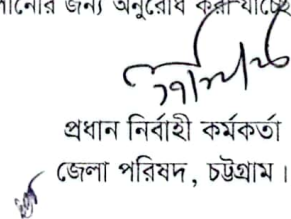 জন্য অনুরোধ করা যাচ্ছে
প্রধান নির্বাহী কর্মকর্তা
জেলা পরিষদ, চট্টগ্রাম।